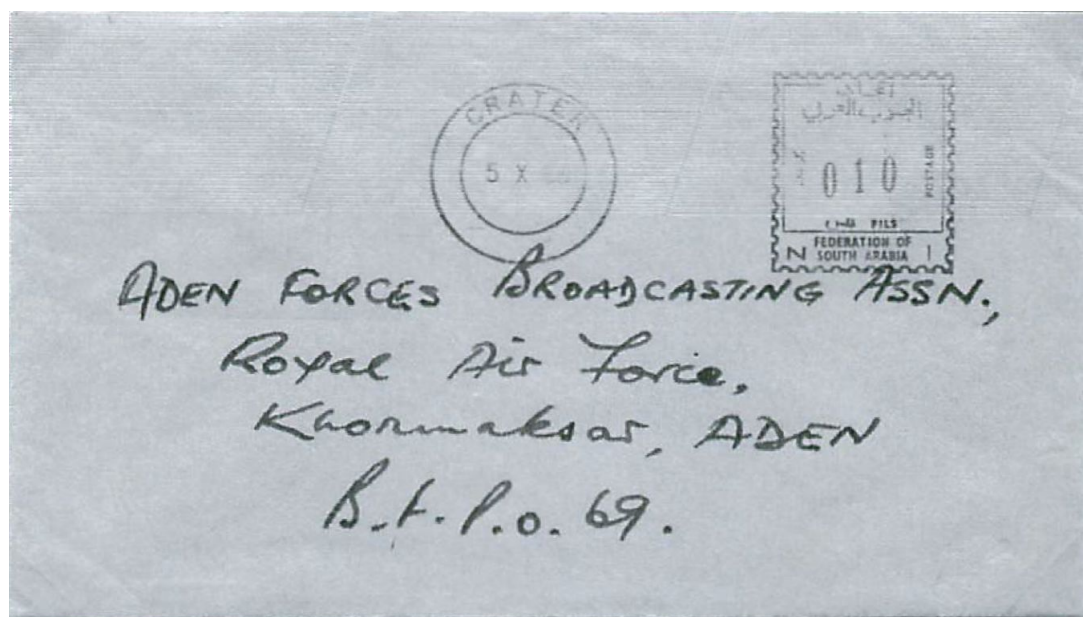 CRATER
5 X
الجنوب العربي
010
POSTAGE
فلس FILS
N FEDERATION OF
SOUTH ARABIA 1
ADEN FORCES BROADCASTING ASSN.,
Royal Air Force,
Khormaksar, ADEN
B.F.P.O. 69.